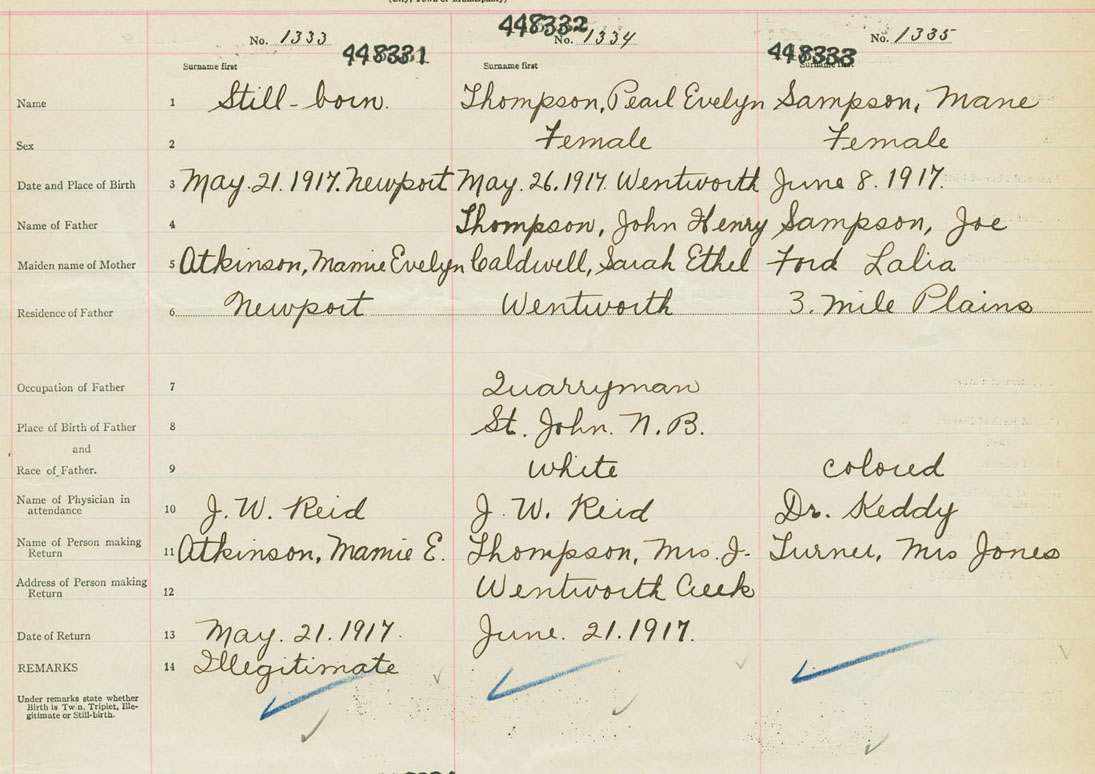 (City, Town or Municipality)
No. 1333 448331 448332 No. 1334 448333 No. 1335
Surname first Surname first Surname first
Name 1 Still-born. Thompson, Pearl Evelyn Sampson, Mane
Sex 2 Female Female
Date and Place of Birth 3 May. 21. 1917. Newport May. 26. 1917. Wentworth June 8. 1917.
Name of Father 4 Thompson, John Henry Sampson, Joe
Maiden name of Mother 5 Atkinson, Mamie Evelyn Caldwell, Sarah Ethel Ford Lalia
Residence of Father 6 Newport Wentworth 3. Mile Plains
Occupation of Father 7 Quarryman
Place of Birth of Father 8 St. John. N. B.
and
Race of Father. 9 white colored
Name of Physician in attendance 10 J. W. Reid J. W. Reid Dr. Keddy
Name of Person making Return 11 Atkinson, Mamie E. Thompson, Mrs. J. Turner, Mrs Jones
Address of Person making Return 12 Wentworth Creek
Date of Return 13 May. 21. 1917. June. 21. 1917.
REMARKS 14 Illegitimate
Under remarks state whether
Birth is Twin, Triplet, Ille-
gitimate or Still-birth.